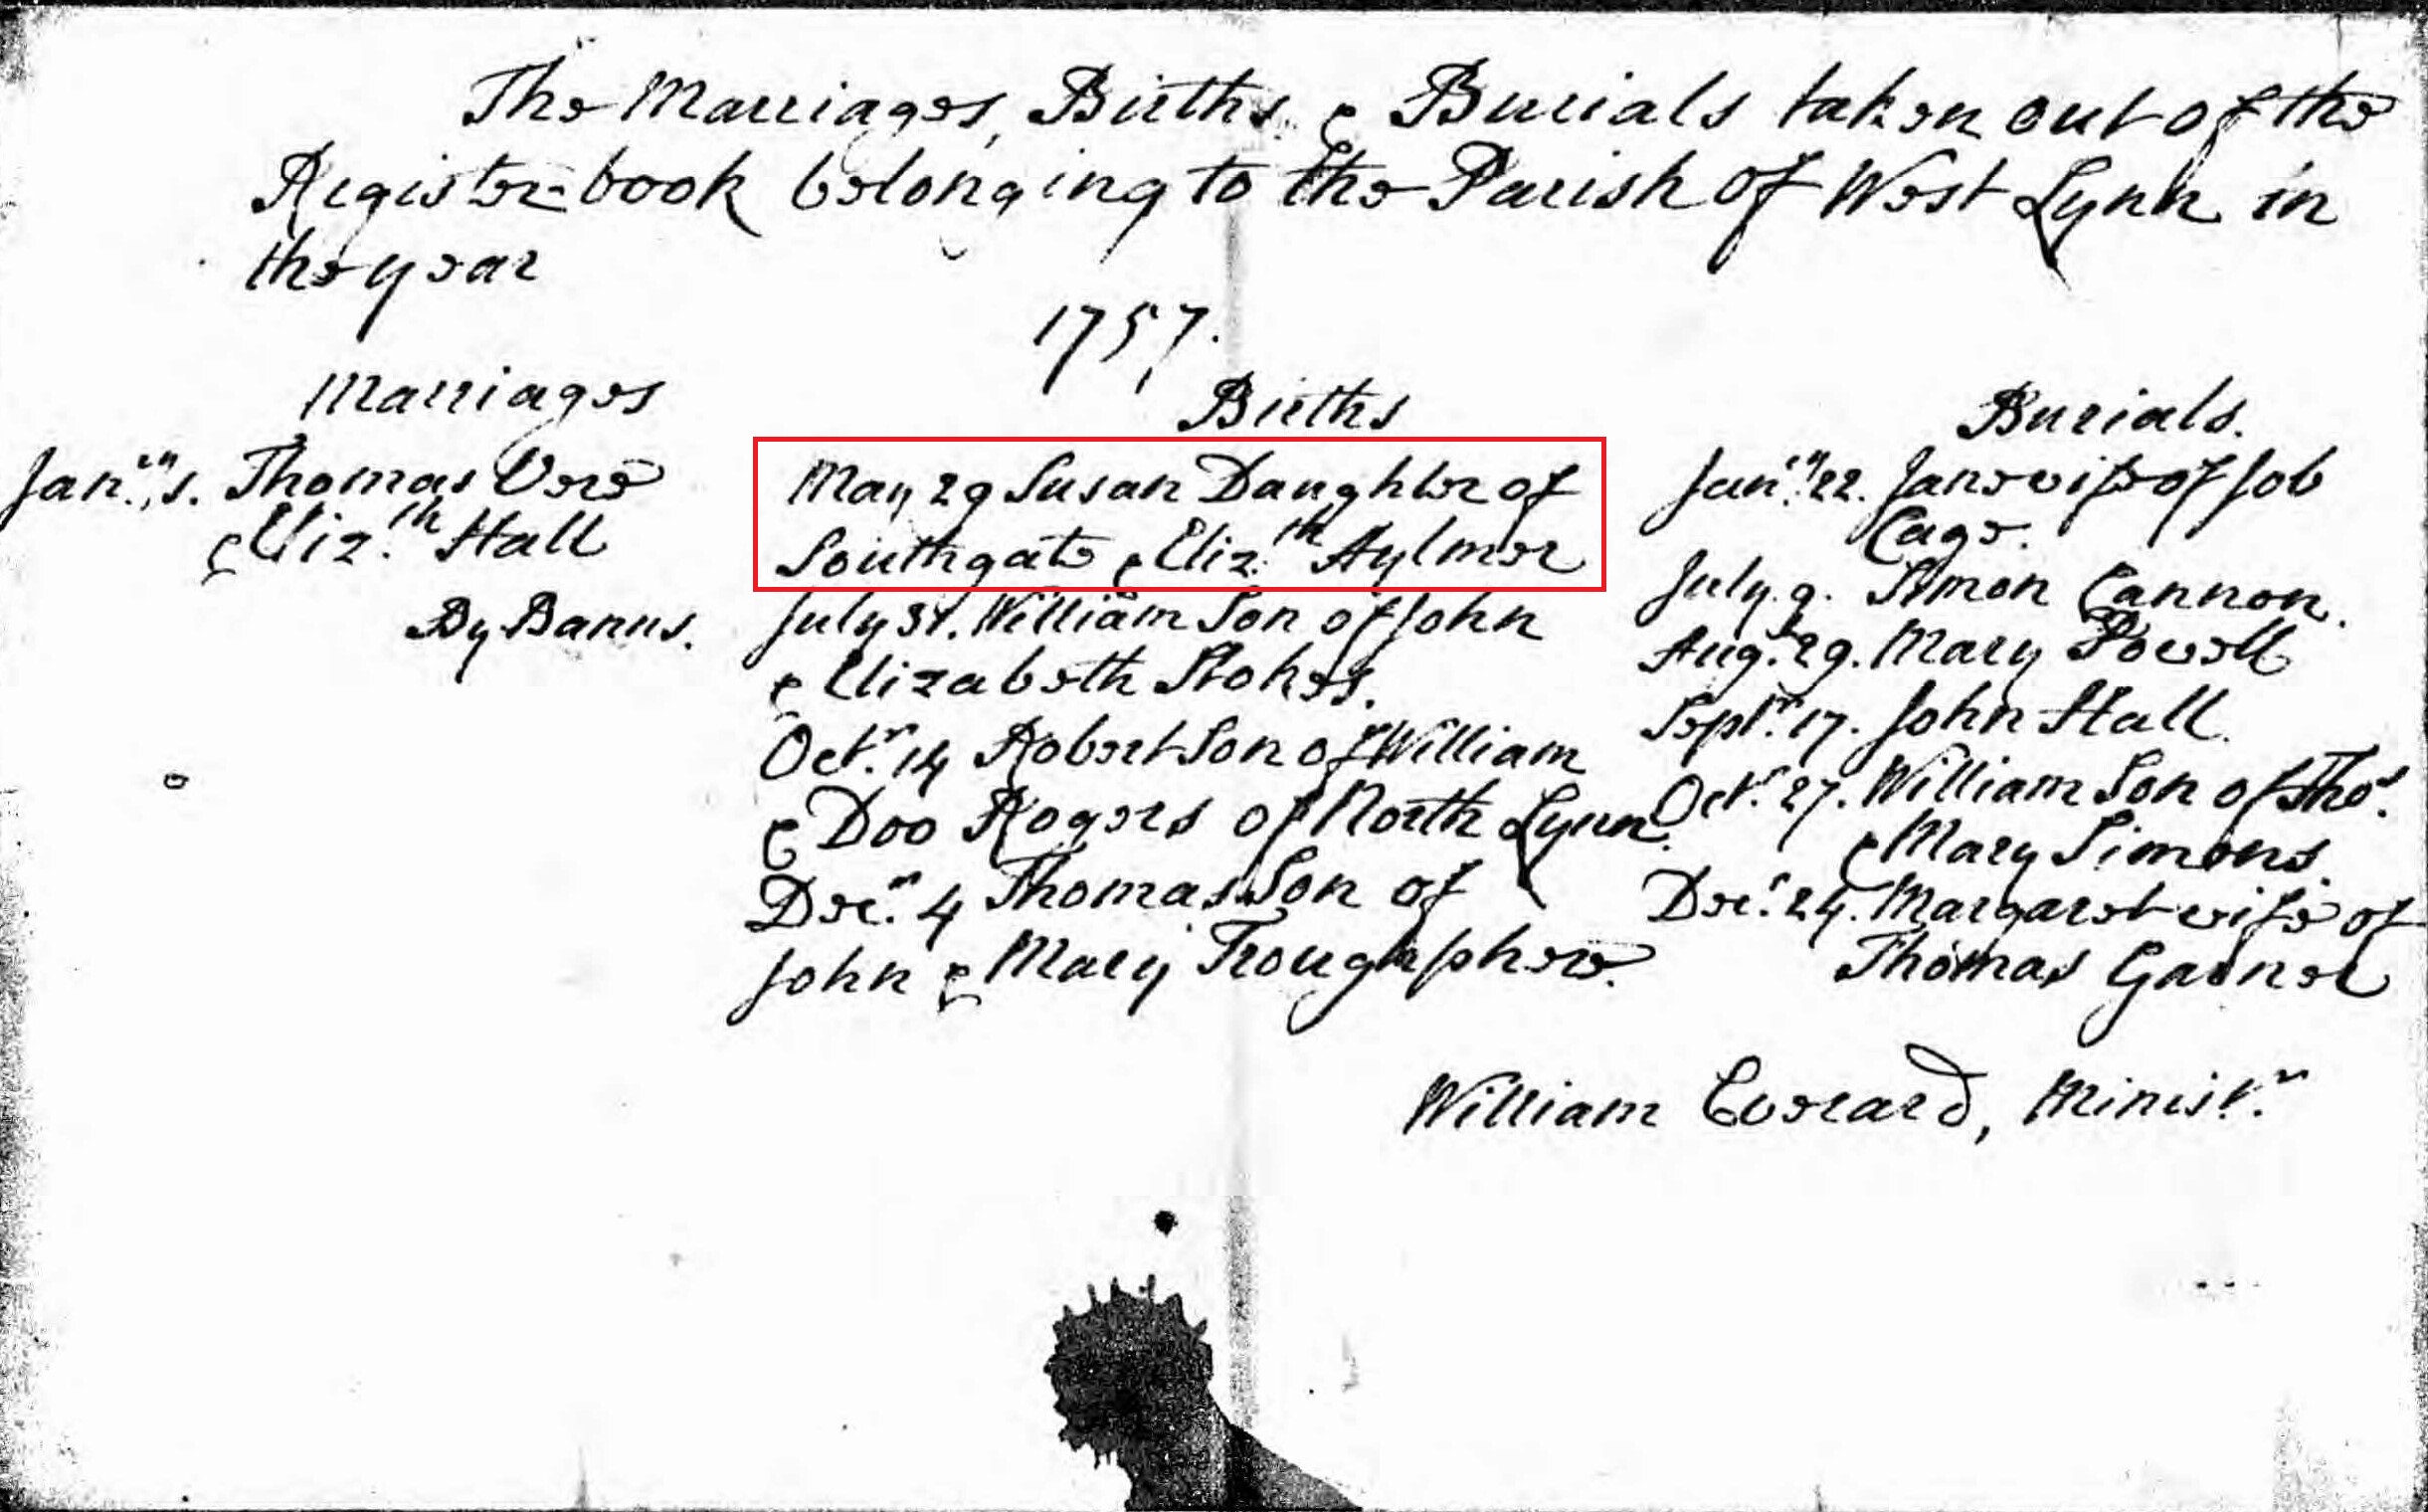 The Marriages, Births & Burials taken out of the
Register-book belonging to the Parish of West Lynn in
the year
1757.
Marriages
Jan.ry
Thomas Vere
& Eliz.th Hall
By Banns.
Births
May 29 Susan Daughter of
Southgate & Eliz.th Aylmer
July 31. William Son of John
& Elizabeth Stokes.
Oct.r 14 Robert Son of William
& Doo Rogers of North Lynn.
Dec.r 4 Thomas Son of
John & Mary
Burials.
Jan.ry 22. Jane wife of Job
Cage.
July. 9. Simon Cannon.
Aug.t 29. Mary Powell
Sept.r 17. John Hall.
Oct.r 27. William Son of Tho.s
& Mary Simons.
Dec.r 24. Margaret wife of
Thomas Garner
William Everard, Minist.r